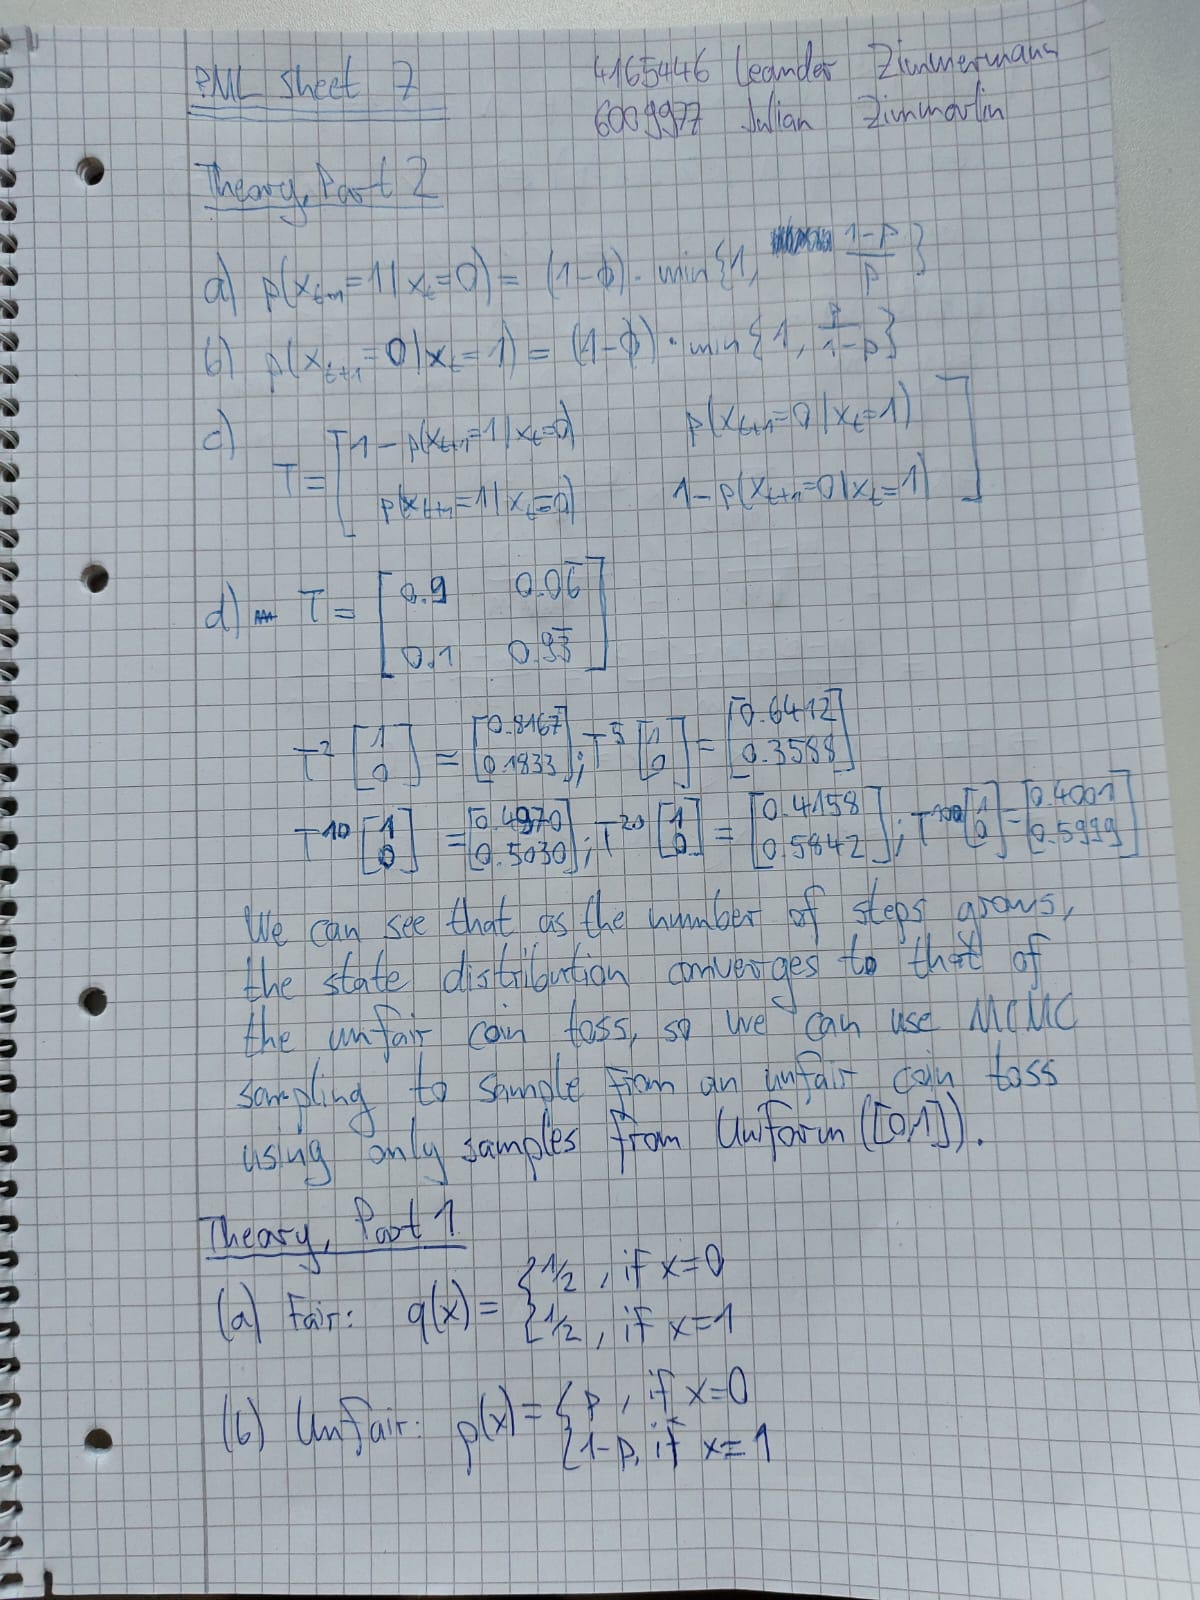 PML Sheet 7
4165446 Leander Zimmermann
6009977 Julian Zimmerlin
Theory, Part 2
a) p(x_{t+1}=1|x_t=0) = (1-ϕ)·min{1, \frac{1-p}{p}}
b) p(x_{t+1}=0|x_t=1) = (1-ϕ)·min{1, \frac{p}{1-p}}
c) T = [1-p(x_{t+1}=1|x_t=0) p(x_{t+1}=0|x_t=1)
p(x_{t+1}=1|x_t=0) 1-p(x_{t+1}=0|x_t=1)]
d) T = [0.9 0.0\bar{6}
0.1 0.9\bar{3}]
T² [1 0] = [0.8167 0.1833]; T⁵ [1 0] = [0.6412 0.3588]
T¹⁰ [1 0] = [0.4970 0.5030]; T²⁰ [1 0] = [0.4158 0.5842]; T¹⁰⁰ [1 0] = [0.4001 0.5999]
We can see that as the number of steps grows,
the state distribution converges to that of
the unfair coin toss, so we can use MCMC
sampling to sample from an unfair coin toss
using only samples from Uniform([0,1]).
Theory, Part 1
(a) Fair: q(x) = {1/2, if x=0
{1/2, if x=1
(b) Unfair: p(x) = {p, if x=0
{1-p, if x=1